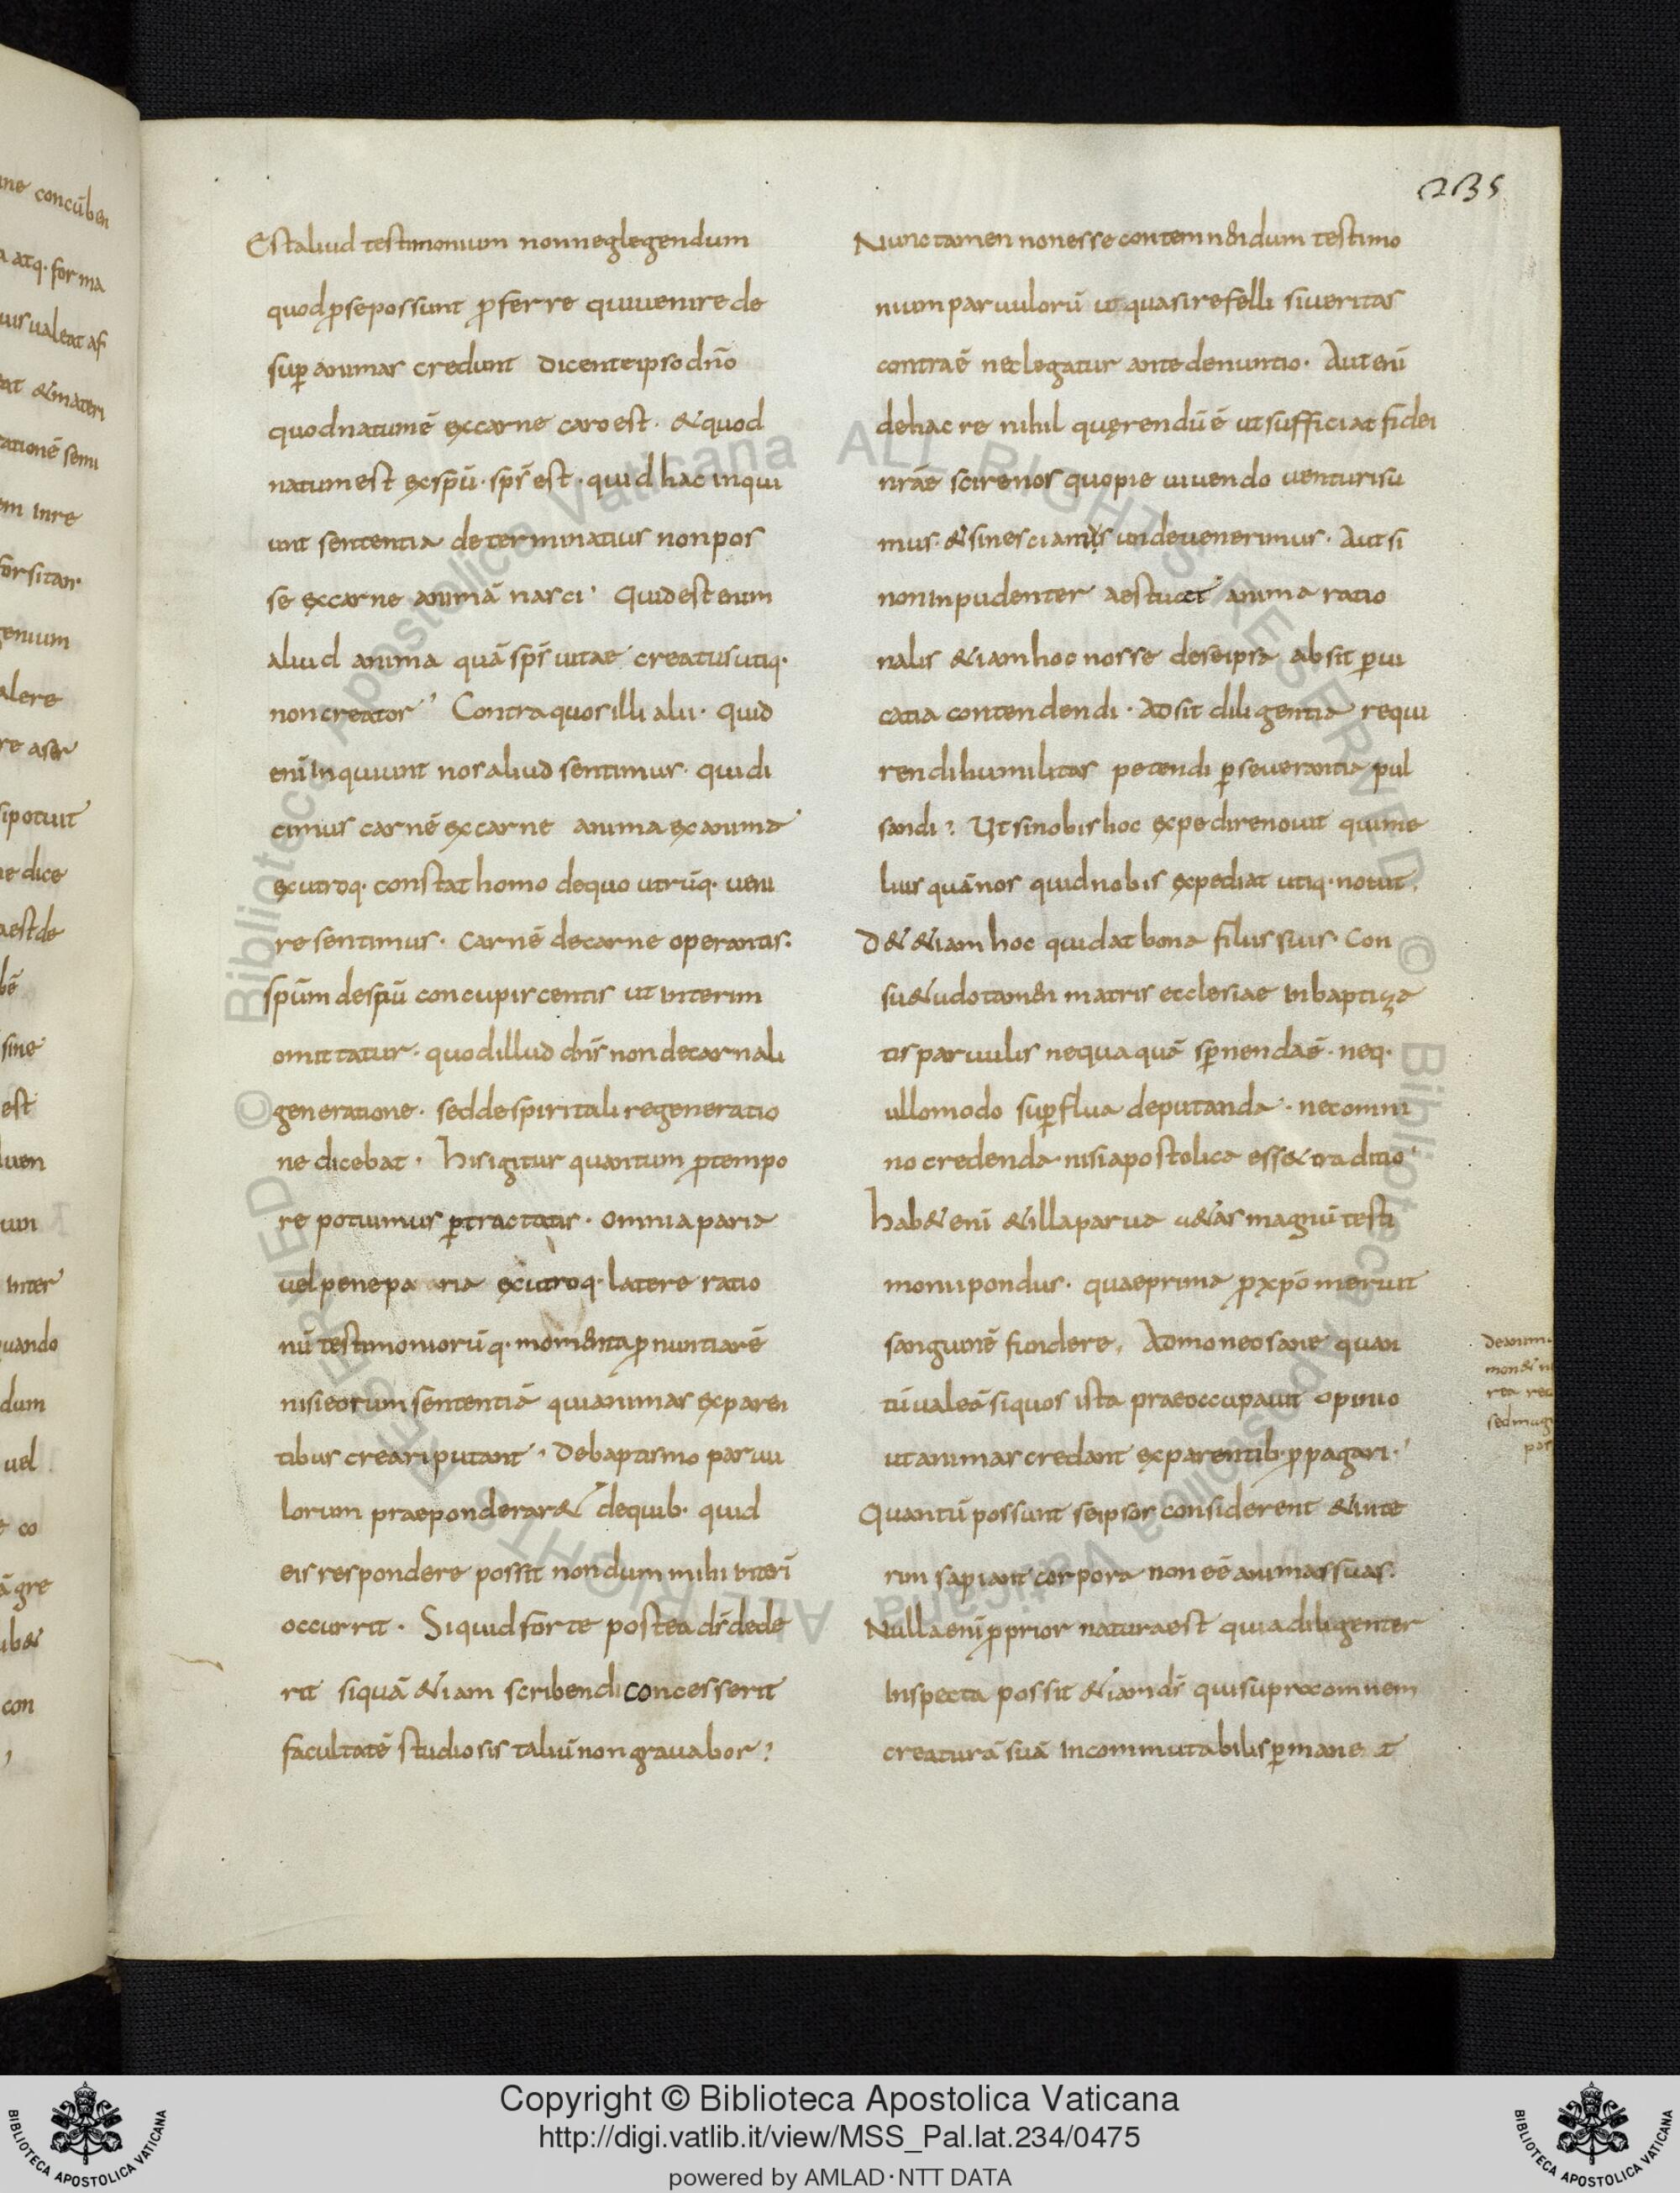 235
Est aliud testimonium non neglegendum
quod ꝑ se possunt ꝓferre qui uenire de
suꝑ animas credunt dicente ipso dn̄o
quod natum ē ex carne caro est · & quod
natum est ex spū · spś est · quid hac inqui
unt sententia determinatius non pos
se ex carne animā nasci · Quid est enim
aliud anima quā spś uitae creatus utiq·
non creator Contra quos illi alii · quid
eni inquiunt nos aliud sentimus · qui di
cimus carnē ex carne anima ex anima
ex utroq· constat homo de quo utrūq· ueni
re sentimus · carnē de carne operantis ·
spūm de spū concupiscentis ut interim
omittatur · quod illud dnś non de carnali
generatione · sed de spiritali regeneratio
ne dicebat · his igitur quantum ꝓ tempo
re potuimus ꝑtractatis · omnia paria
uel pene pa ria ex utroq· latere ratio
nū testimoniorūq· momenta ꝓnuntiarē
nisi eorum sententiā qui animas ex paren
tibus creari putant · de baptismo paruu
lorum praeponderar& de quib· quid
eis respondere possit nondum mihi interī
occurrit · Si quid forte postea dś dede
rit siquā &iam scribendi concesserit
facultatē studiosis taliū non grauabor ?
Nunc tamen non esse contemnendum testimo
nium paruulorū ut quasi refelli si ueritas
contra ē neclegatur ante denuntio · Aut enī
de hac re nihil quęrendū ē ut sufficiat fidei
nrāe scire nos quo pie uiuendo uenturi su
mus · & si nesciamus unde uenerimus · Aut si
non inpudenter aestuat anima ratio
nalis &iam hoc nosse de se ipsa absit ꝑui
catia contendendi · adsit diligentia requi
rendi humilitas petendi ꝑseuerantia pul
sandi ? Ut si nobis hoc expedire nouit qui me
lius quā nos quid nobis expediat utiq· nouit ·
D& &iam hoc qui dat bona filiis suis · Con
su&udo tamen matris ecclesiae in baptiza
tis paruulis nequaquā sꝑnenda ē · neq·
ullo modo suꝑflua deputanda · nec omni
no credenda nisi apostolica ess& traditio
hab& enī & illa parua &as magnū testi
monii pondus · quae prima ꝓ xp̄o meruit
sanguinē fundere · Admoneo sane quan
tū ualeā si quos ista praeoccupauit opinio
ut animas credant ex parentib· ꝓpagari ·
Quantū possunt se ipsos considerent & inte
rim sapiant corpora non eē animas suas ·
Nulla enī ꝓprior natura est qui a diligenter
inspecta possit &iam dś qui supra omnem
creaturā suā incommutabilis ꝑmanet
Copyright © Biblioteca Apostolica Vaticana
http://digi.vatlib.it/view/MSS_Pal.lat.234/0475
powered by AMLAD·NTT DATA
BIBLIOTECA APOSTOLICA VATICANA
BIBLIOTECA APOSTOLICA VATICANA